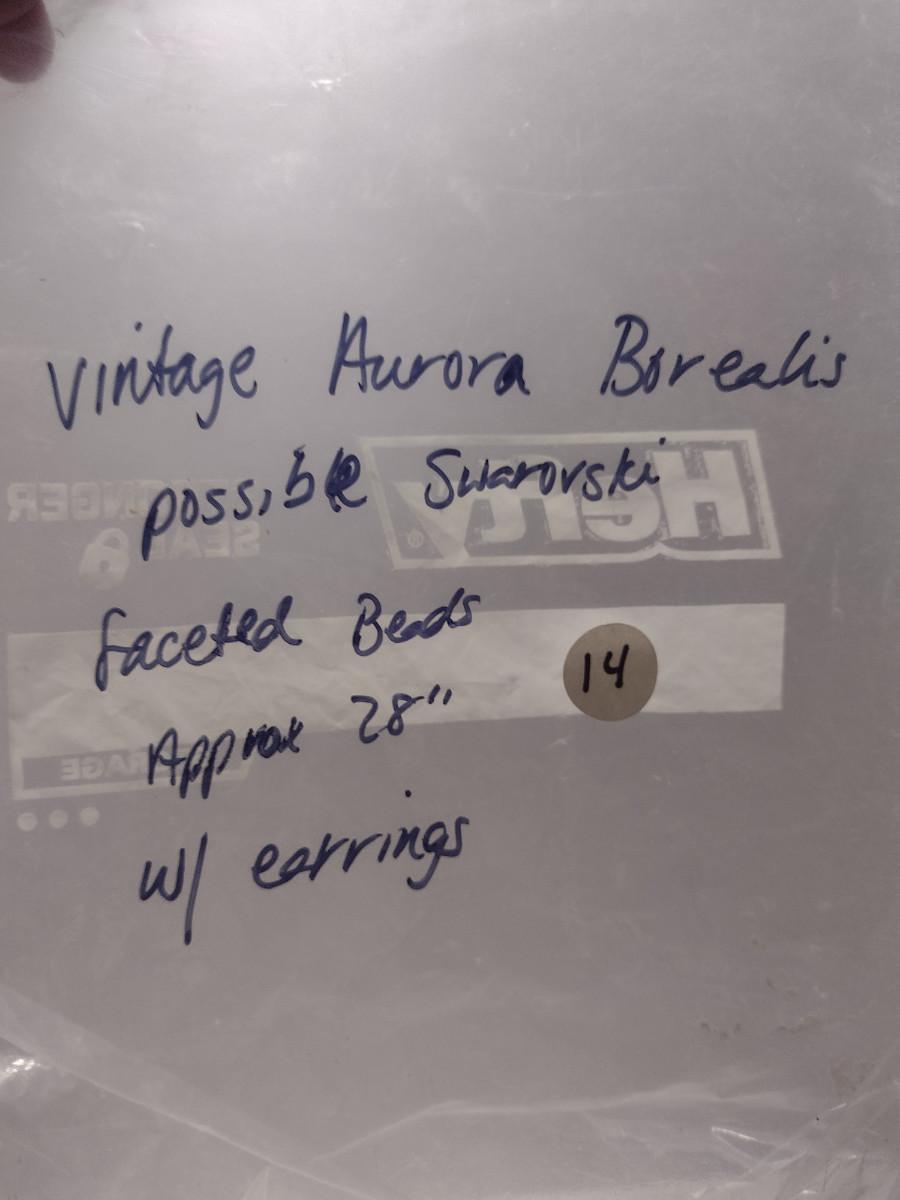 Vintage Aurora Borealis
possible Swarovski
Hefty®
SEAL
faceted Beads
14
Approx 28"
w/ earrings